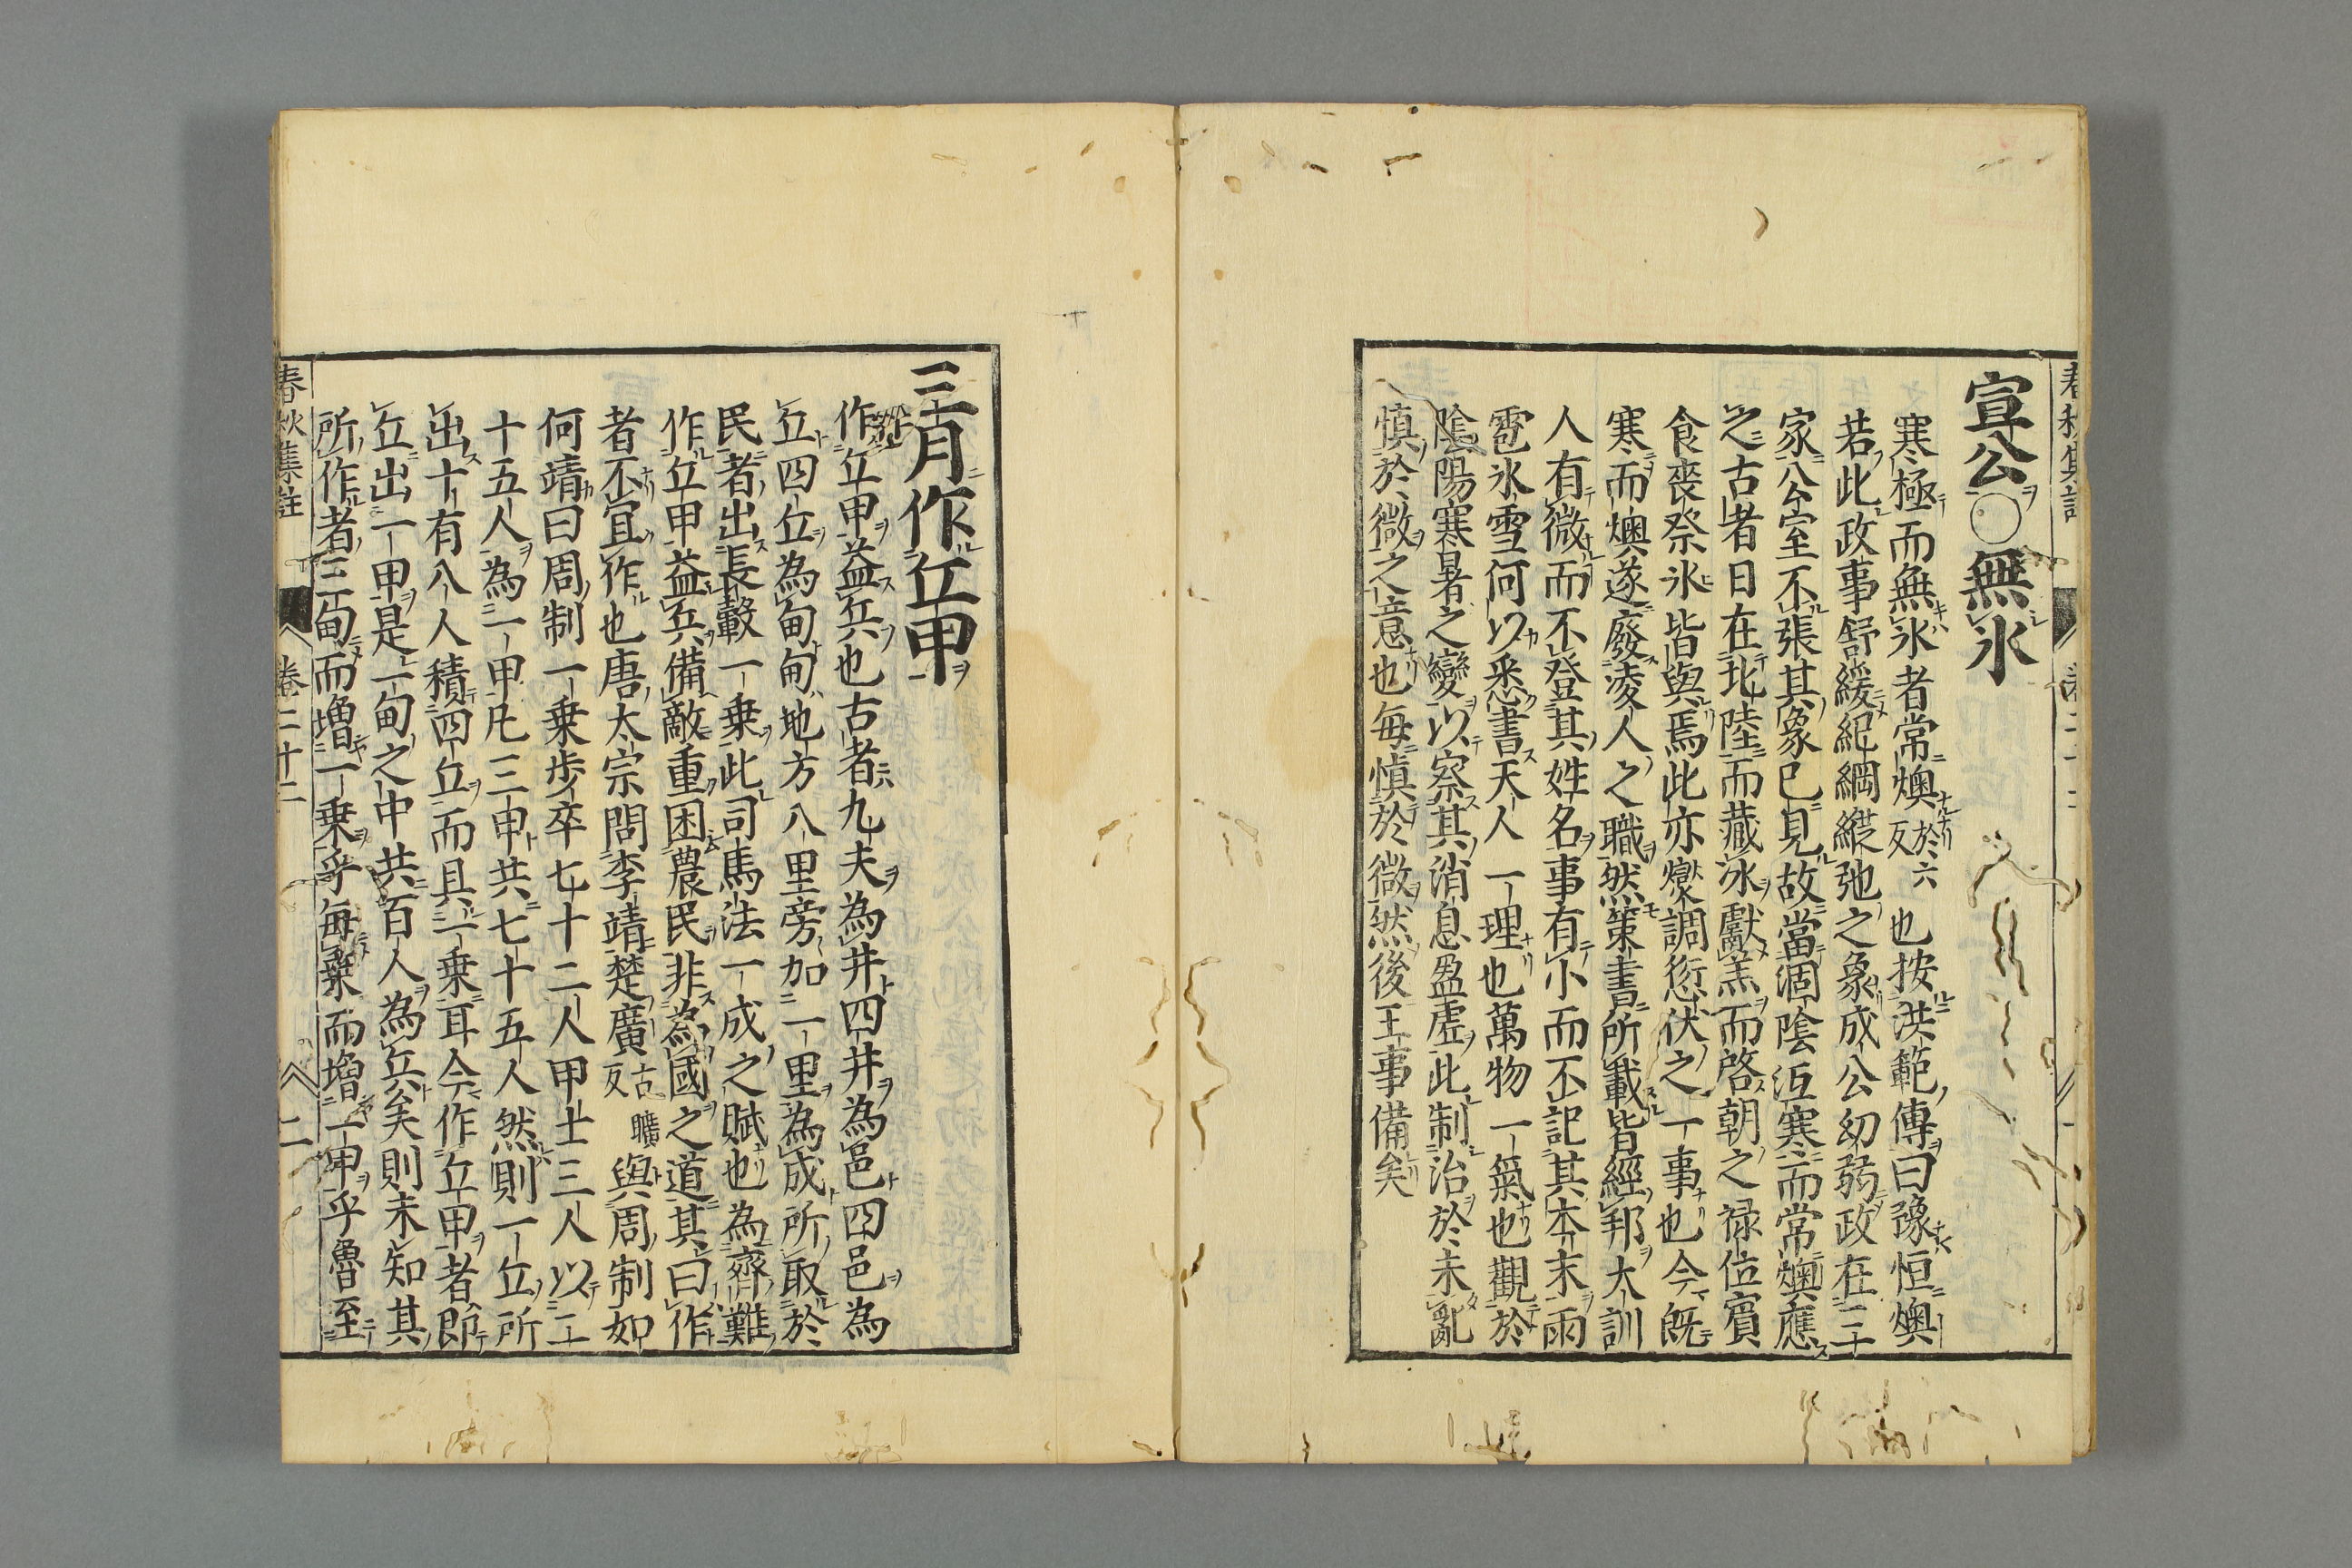 宣公○無氷
寒極而無氷者常燠於六反也按洪範傳曰豫恒燠
若此政事舒緩紀綱縱弛之象成公幼弱政在三
家公室不張其象已見故當涸陰沍寒而常燠應
之古者日在北陸而藏氷獻羔而啓朝之禄位賓
食喪祭氷皆與焉此亦燮調愆伏之一事也今既
寒而燠遂廢凌人之職然策書所載皆經邦大訓
人有微而不登其姓名事有小而不記其本末雨
雹氷雪何以悉書天人一理也萬物一氣也觀於
陰陽寒暑之變以察其消息盈虚此制治於未亂
慎於微之意也毎慎於微然後王事備矣
三月作丘甲
作丘甲益兵也古者九夫為井四井為邑四邑為
丘四丘為甸甸地方八里旁加一里為成所取於
民者出長轂一乗此司馬法一成之賦也為齊難
作丘甲益兵備敵重困農民非為國之道其曰作
者不宜作也唐太宗問李靖楚廣古曠反與周制如
何靖曰周制一乗歩卒七十二人甲士三人以二
十五人為一甲凡三甲共七十五人然則一丘所
出十有八人積四丘而具一乗耳今作丘甲者即
丘出一甲是一甸之中共百人為兵矣則未知其
所作者三甸而増一乗乎毎乗而増一甲乎魯至
春秋集註
卷二十二
二